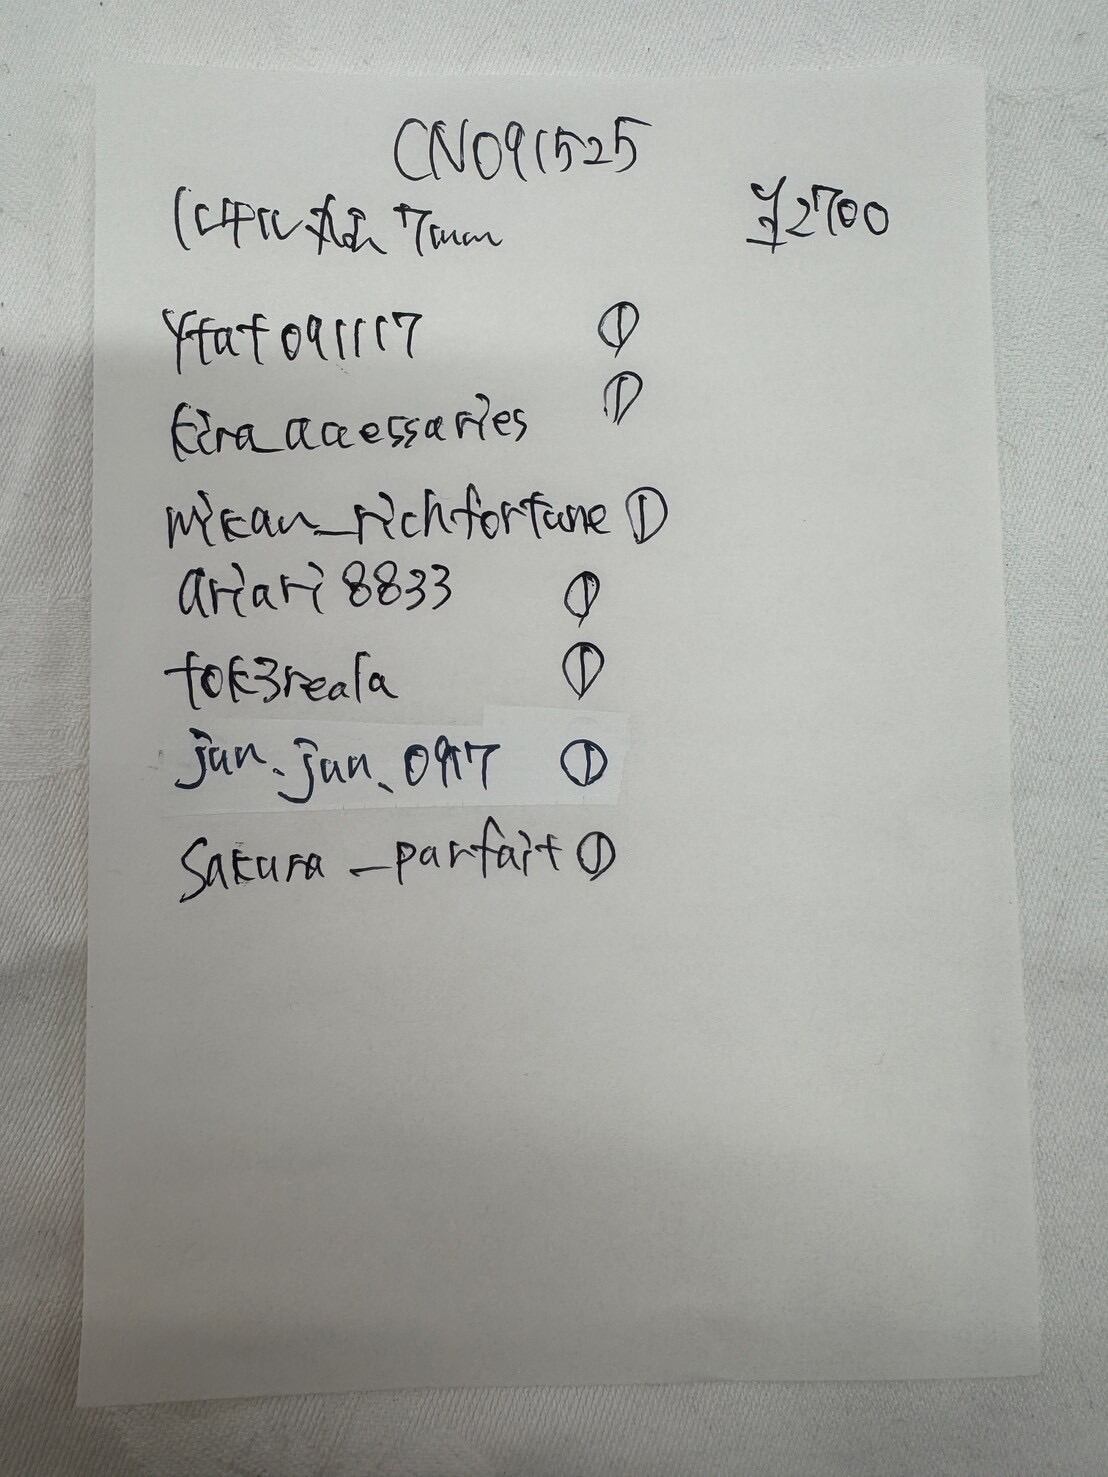 CN091525
7mm ¥2700
ytat091117 ①
kira_acessaries ①
mikan_richfortune ①
ariari8833 ①
tok3reala ①
jun.jun.0917 ①
Sakura_parfait ①